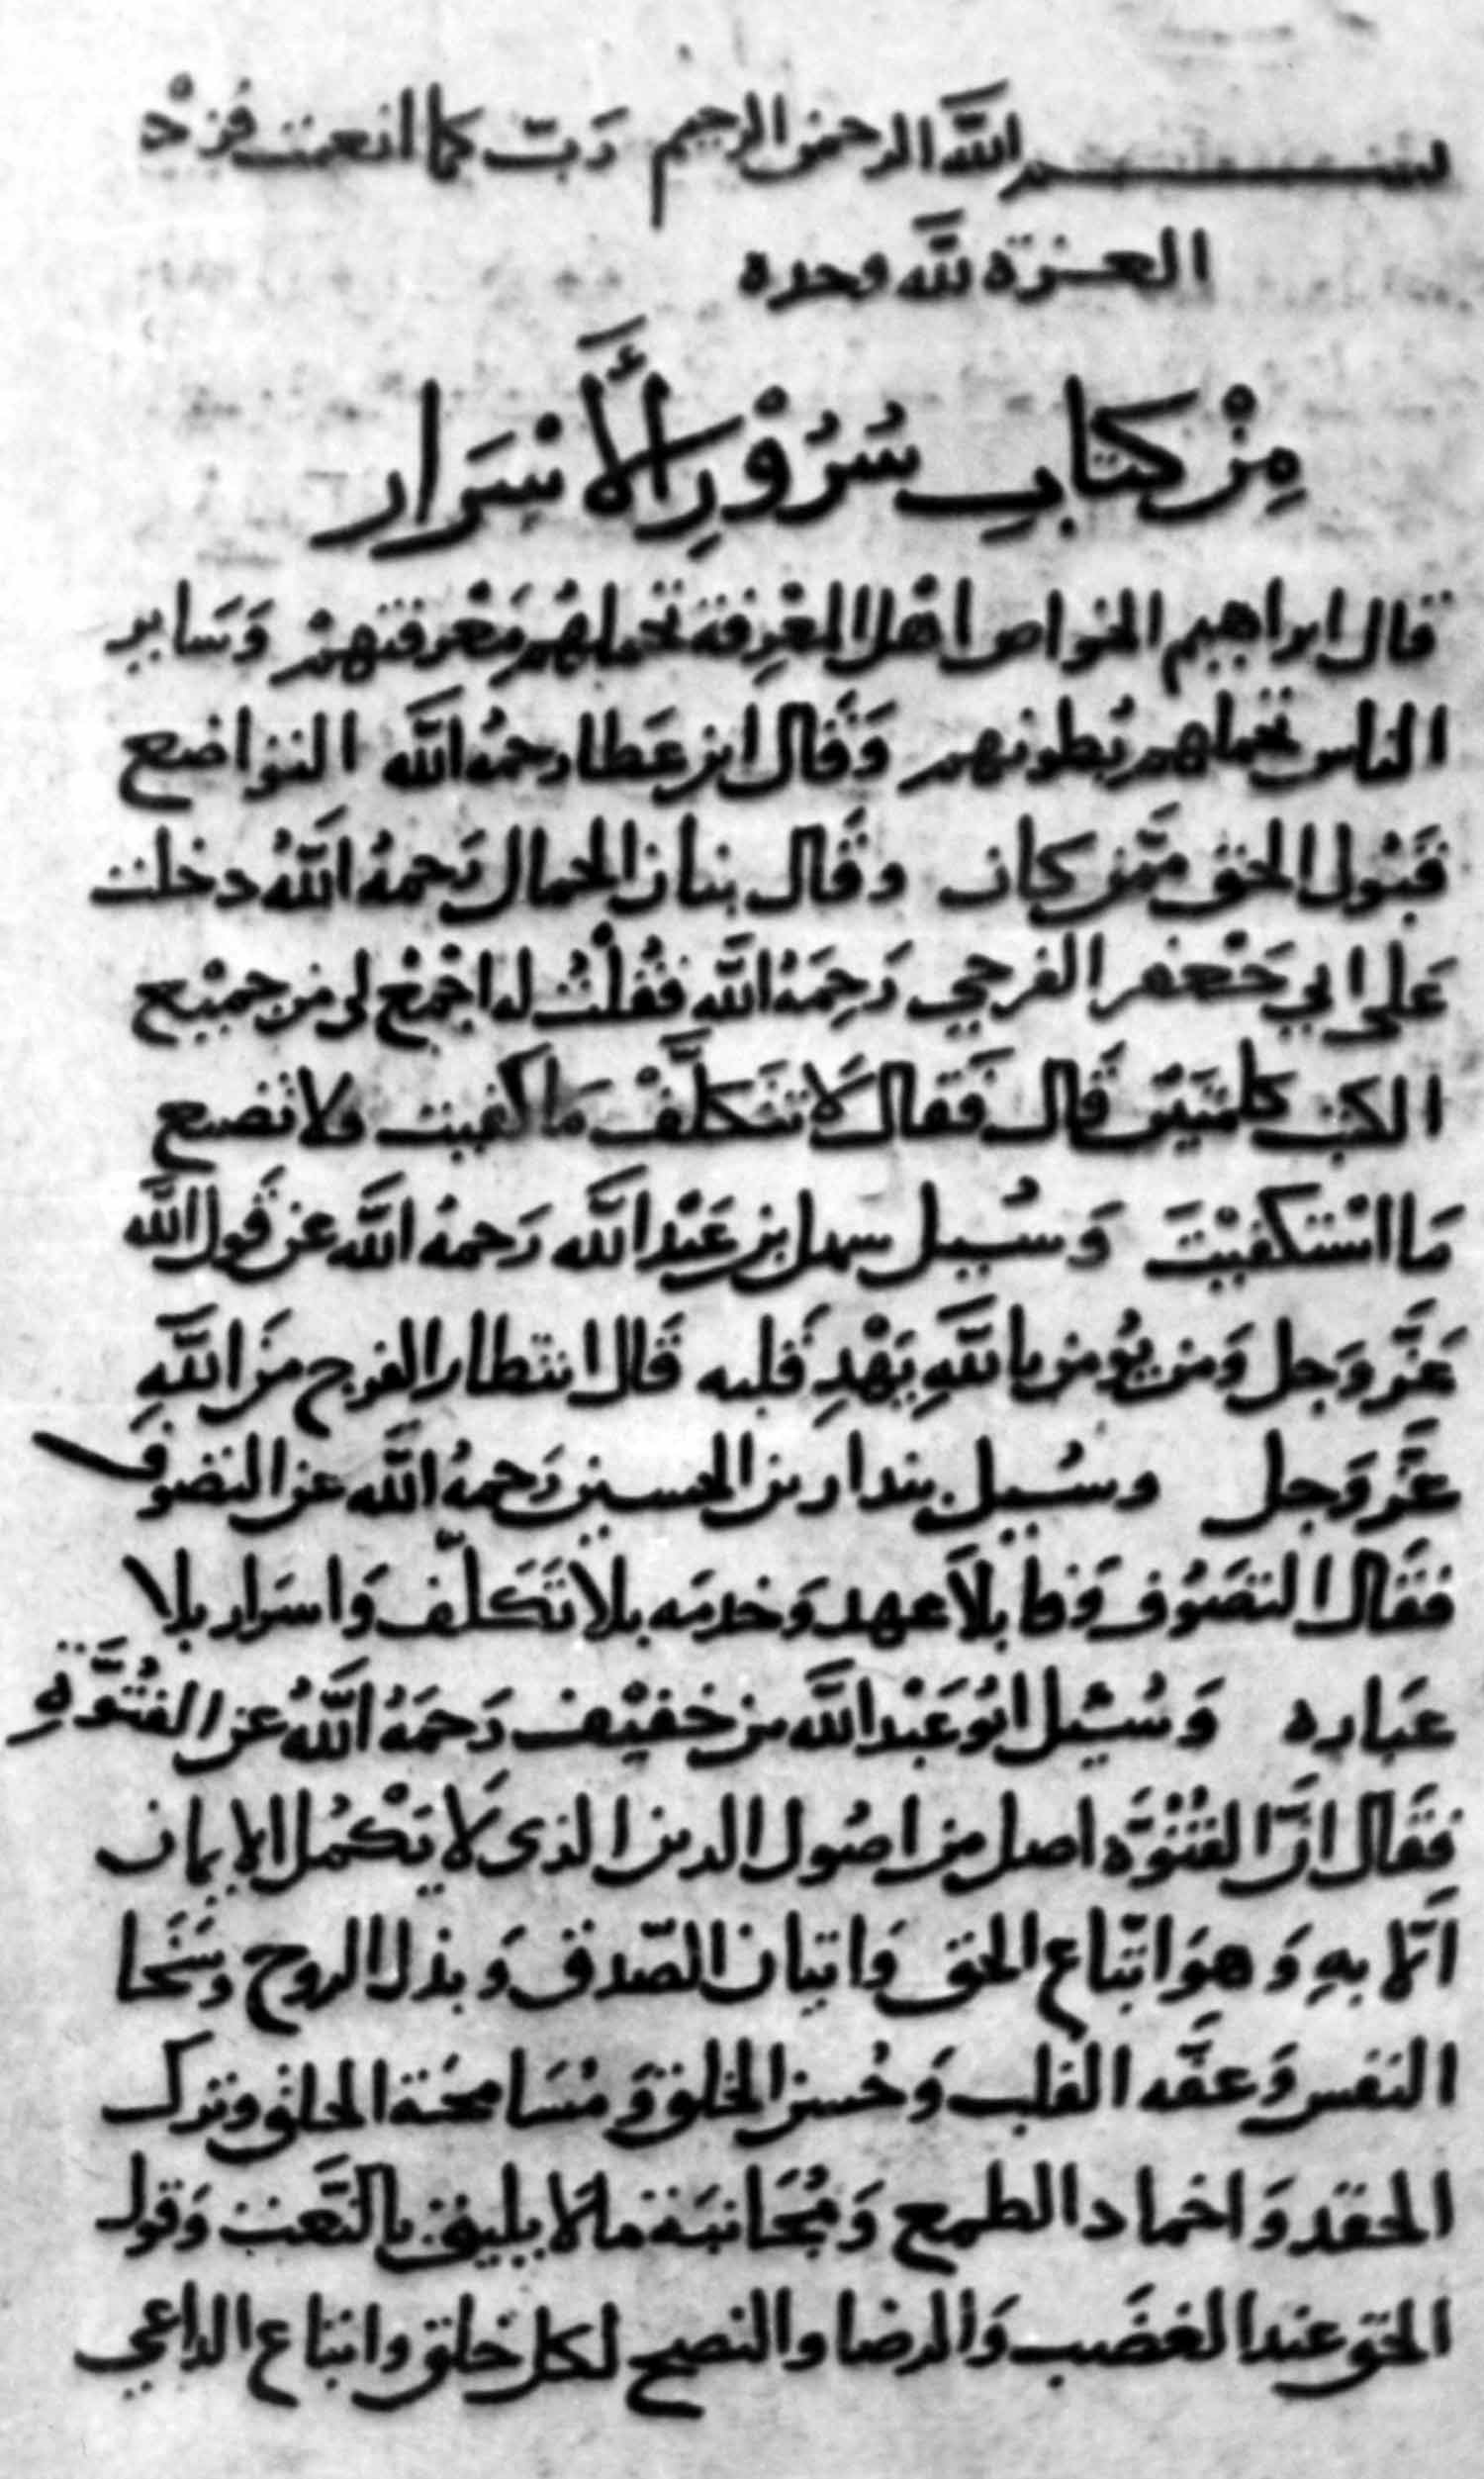 بسم الله الرحمن الرحيم رَبّ كما انعمت فزِدْ
العزة لله وحده
مِنْ كتابِ سُرُوْرِ الأَسْرَار
قال ابراهيم الخواص اهْل المعْرِفة تحملهُم مَعْرفتهمْ وَسَاير
الناس تحملهم بُطونهم وَقَال ابن عَطا رحمهُ الله التواضع
قَبُول الحق ممَّن كان وقَال بنان الحمال رَحمهُ اللهُ دخلت
عَلى ابي جَعْفر الفرجي رَحِمَهُ الله فقُلْتُ له اجْمَعْ لي من جميْع
الكتب كلمتَيْن قَال فَقَال لَا تتَكَلَّفْ مَا كفيت ولا تضيع
مَا اسْتكفيْتَ وَسُيل سهل بن عَبْد الله رَحمهُ الله عن قَول الله
عَزَّ وَجل وَمن يؤمن باللهِ يَهْدِ قَلبه قَال انتظار الفرج مِنَ اللهِ
عَزَّ وَجل وسُيل بندار بن الحسين رَحمهُ الله عن التصَوف
فقَال التصَوّف وَفا بلَا عهد وَخدمَه بلا تَكَلّف وَاسَرار بلا
عبَاره وَسُئيل ابُو عَبْد الله بن خفيْف رَحمَهُ اللهُ عن الفُتُوَّةِ
فَقَال انَّ الفُتُوَّه اصل من اصُول الدين الذى لَا يَكْمُل الايمان
الّا بهِ وَهوَ اتّباع الحق وَاتيان الصّدق وَبذل الروح وسَخَا
النفس وَعفّه القلب وَحُسن الخلق وَمُسَامحَة الخلق وترك
الحقد وَاخماد الطمع وَمُجَانبَة ما لَا يليق بالنَّعت وَقول
الحق عند الغضَب وَالرضا والنصح لكل خلق واتباع الداعي